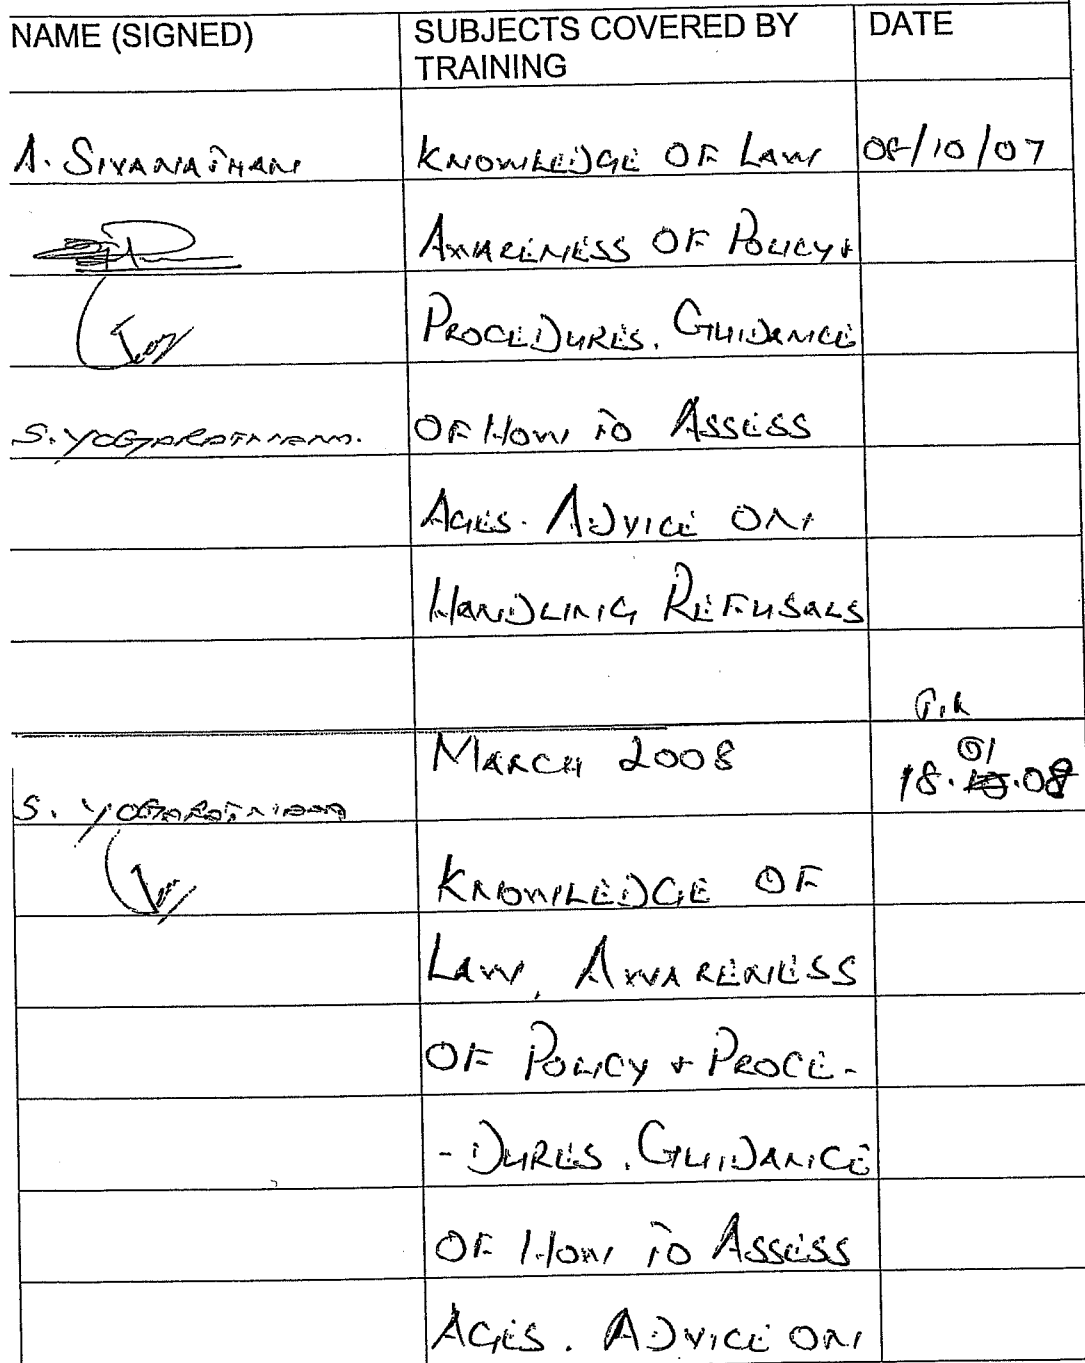 NAME (SIGNED) SUBJECTS COVERED BY TRAINING DATE
A. SIVANATHAN KNOWLEDGE OF LAW 08/10/07
AWARENESS OF POLICY +
PROCEDURES. GUIDANCE
S. YOGARATNAM. OF HOW TO ASSESS
AGES. ADVICE ON
HANDLING REFUSALS
MARCH 2008
01
S. YOGARATNAM 18. .08
KNOWLEDGE OF
LAW, AWARENESS
OF POLICY + PROCE-
- DURES. GUIDANCE
OF HOW TO ASSESS
AGES. ADVICE ON